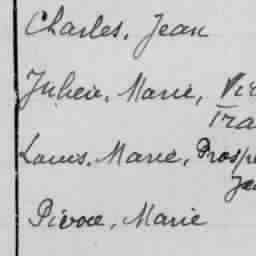 Charles, Jean
Julien, Marie,
Tra
Louis, Marie, Prospe
Marie